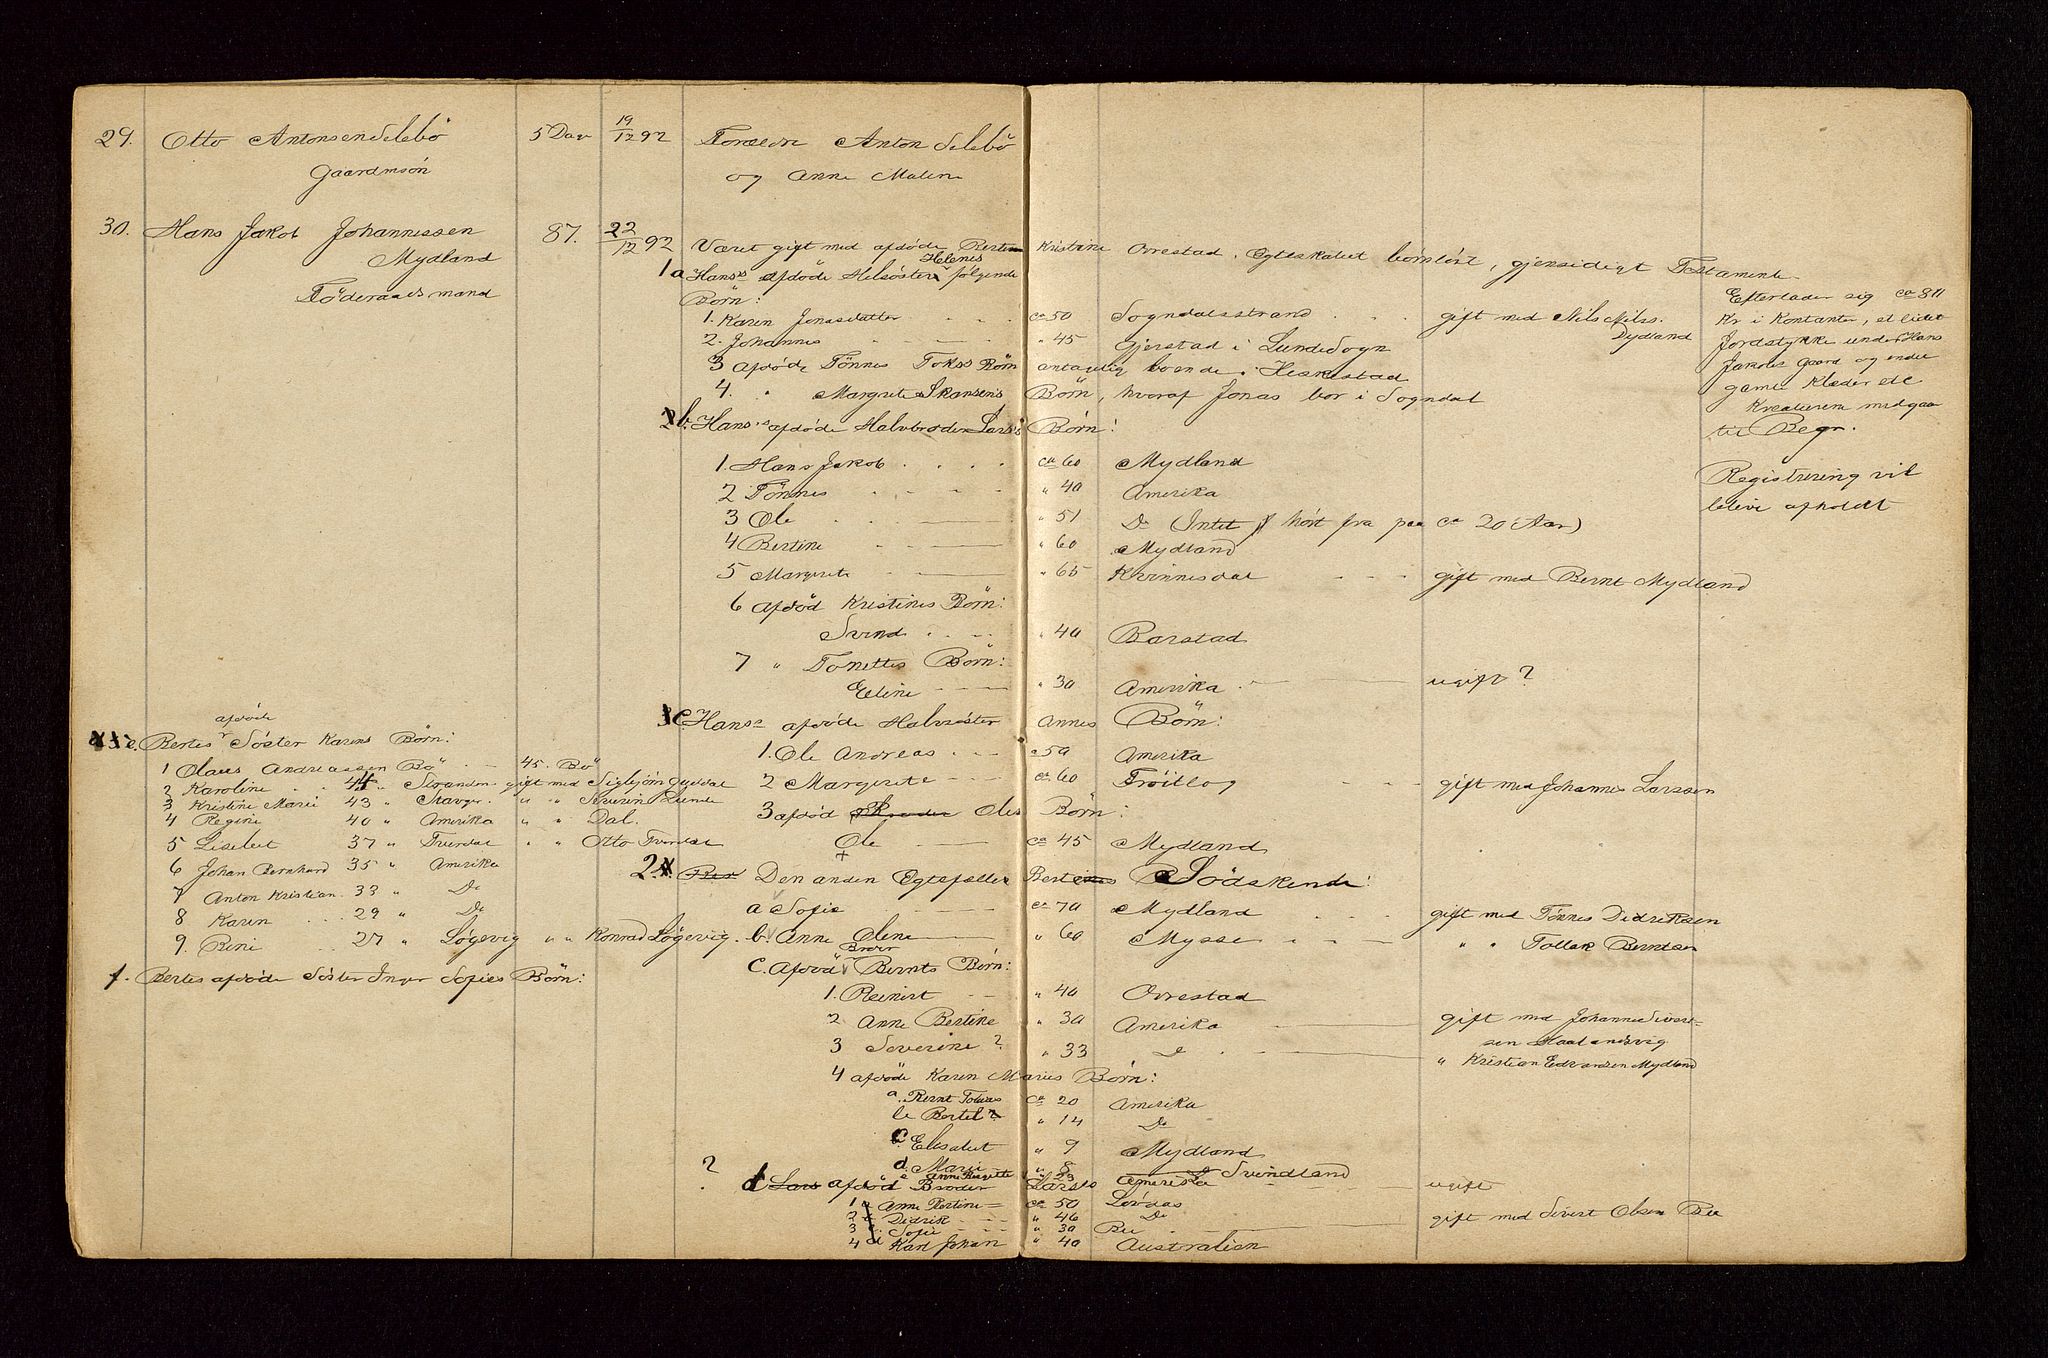 29. Otto Antonsen Selebö 5 Dar 19/12 92 Forældre Anton Selebö
Gaardmsön og Anne Malene
30. Hans Jakob Johannessen 87. 22/12 92 Været gift med afdöde Berte Kristine Ovrestad, Egteskabet börnlöst, gjensidigt Testamente
Mydland
Föderaadsmand
1a Hans's afdöde Helsöster Helenes følgende
Börn:
1. Karen Jonasdatter ca 50 Sogndalsstrand gift med Nils Nilss. Dydland
2. Johannes " 45 Gjerstad i Lunde Sogn
3 afdöde Tönnes Börn antagelig boende i Heskestad
4. " Margrete Skansens Börn, hvoraf Jonas bor i Sogndal
Efterlader sig ca 800
Kr i Kontanter, et lidet
Jordstykke under Hans
Jakobs Gaard og endel
gamle Klæder etc
Kreaturene medgaa
til Begr.
Registrering vil
blive afholdt
b. Hans's afdöde Halvbroder Lars's Börn:
1. Hans Jakob ca 60 Mydland
2 Tönnes " 40 Amerika
3 Ole " 51 Do (Intet hört fra paa ca 20 Aar)
4 Bertine " 60 Mydland
5 Margrete " 65 Kvinnesdal gift med Bernt Mydland
6 afdöd Kristines Börn:
Svend " 40 Barstad
7 " Tonettes Börn:
Eline " 30 Amerika ugift?
c. Hans's afdöde Halvsöster Annes Börn:
1. Ole Andreas " 50 Amerika
2 Margrete ca 60 Tröitlog gift med Johannes Larssen
3 afdöd Broder Oles Börn:
Ole ca 45 Mydland
2. Den anden Egtefælle Bertes Södskende:
a Sofie ca 70 Mydland gift med Tönnes Didriksen
b. Anne Oline " 60 Mysse " " Tollak Berntsen
c. Afdöd Broder Bernts Börn:
1. Reinert " 40 Ovrestad
2 Anne Bertine " 30 Amerika gift med Johannes Siverts-
sen Haalandsvig
3 Severine? " 33 Do " Kristian Edvardsen Mydland
4 afdöde Karen Maries Börn:
a. Bernt Tobias ca 20 Amerika
b Bertel? " 14 Do
c. Elisabet " 9 Mydland
d. Marie " 8 Do Svindland
e Anne Birgitte " 23 Amerika ugift
? d Lars afdöd Broder Larses
1 Anne Bertine ca 50 Lövaas
2 Didrik " 46 Do
3 Sofie " 30 Bu gift med Sivert Olsen Bu
4 Karl Johan " 40 Australien
e. Bertes afdöde Söster Karens Börn:
1 Olaus Andreassen Bö 45. Bö
2 Karoline 44 " Stranden gift med Sigbjörn
3 Kristine Marie 43 " Stavger. " " Severin Lunde
4 Regine 40 " Amerika " " Dal.
5 Lisebet 37 " Tverdal " " Otto Tverdal
6 Johan Bernhard 35 " Amerika
7 Anton Kristian 33 " Do
8 Karen 29 " Do
9. Rine 27 " Løgevig " " Konrad Løgevig.
f. Bertes afdöde Söster Inger Sofies Börn: